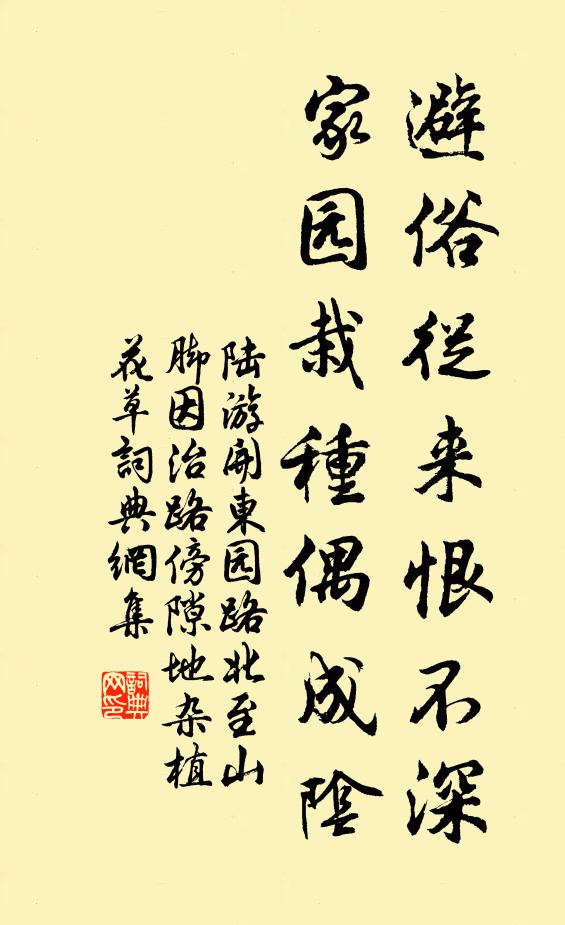 避俗從来恨不深
家园栽種偶成陰
陆游開東园路北至山
脚因治路傍隙地杂植
花草詞典網集
詞典
网印